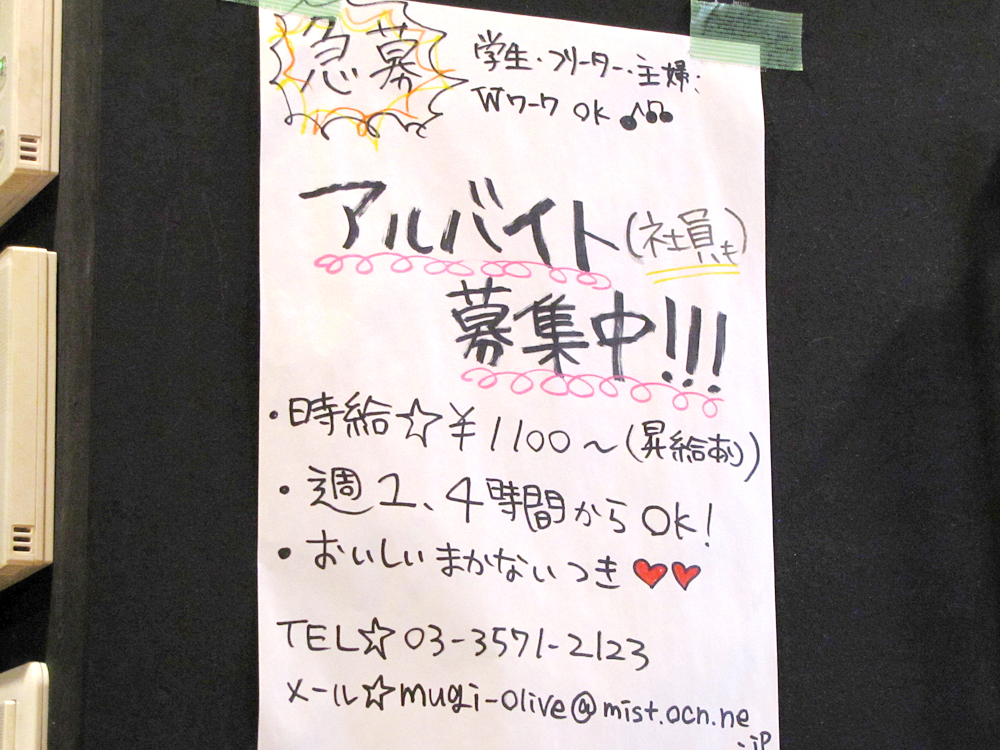 急募
学生・フリーター・主婦・
Wワーク OK
アルバイト(社員も)
募集中!!!
・時給☆¥1100~(昇給あり)
・週1、4時間からOK!
・おいしいまかないつき♥♥
TEL☆03-3571-2123
メール☆mugi-olive@mist.ocn.ne
.jp